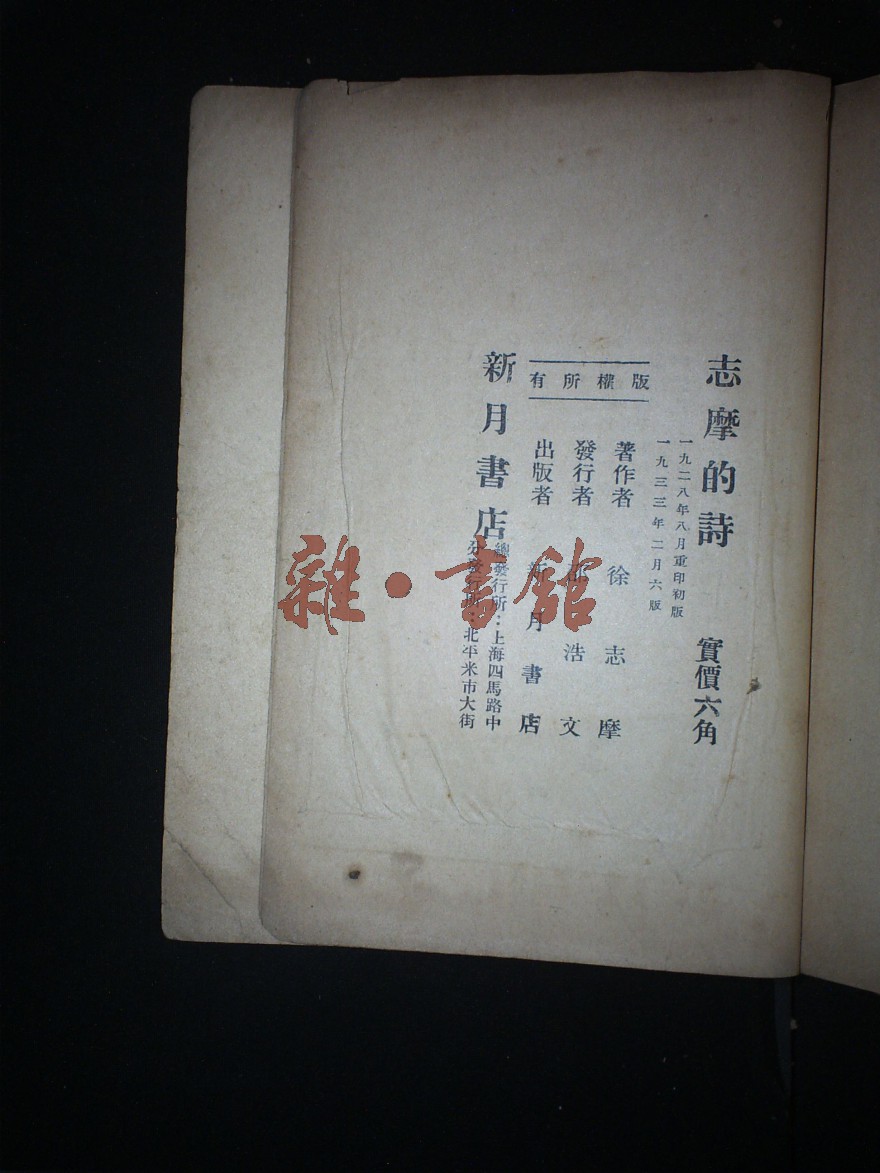 志摩的詩 實價六角
一九二八年八月重印初版
一九三三年二月六版
版權所有
著作者 徐志摩
發行者 邵浩文
出版者 新月書店
新月書店
總發行所：上海四馬路中
分發行所：北平米市大街
雜·書館